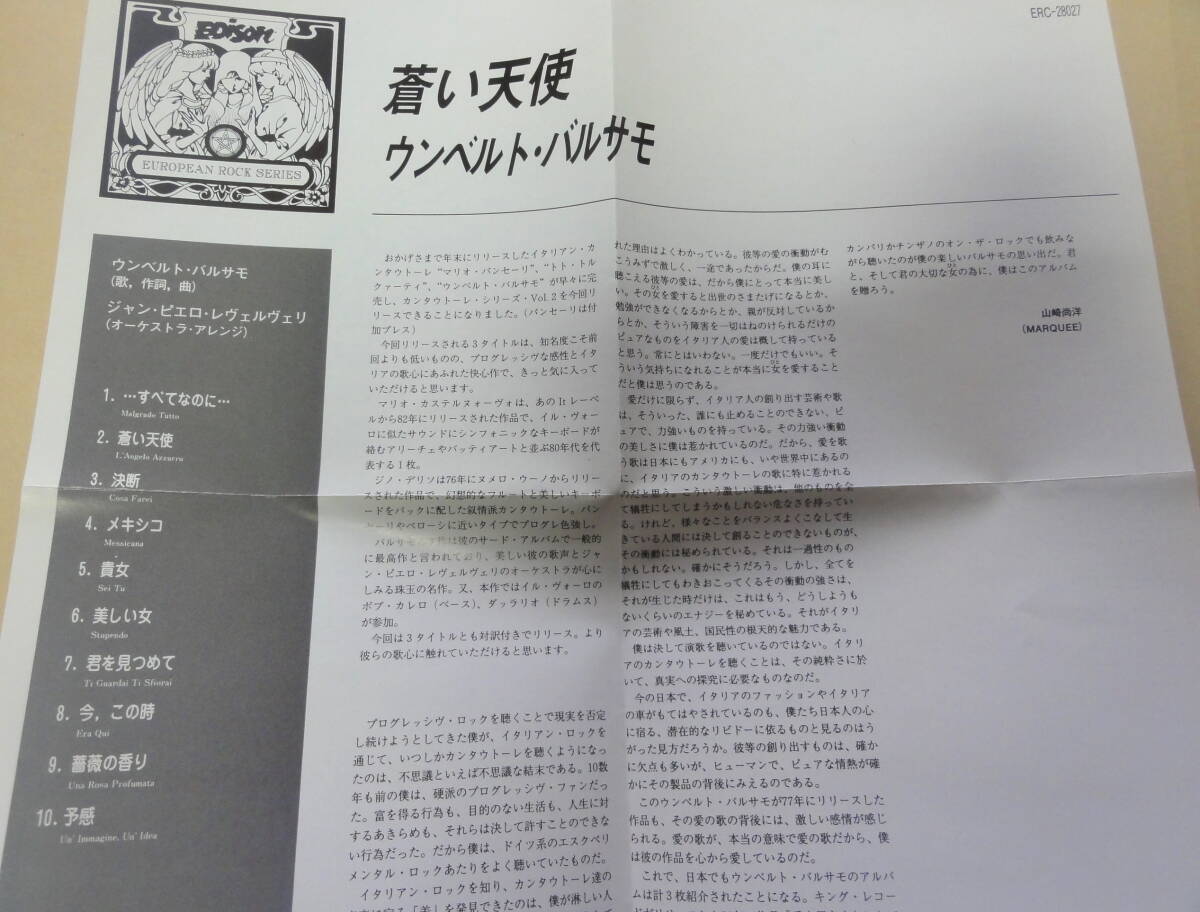 EDiSON
EUROPEAN ROCK SERIES
ERC-28027
蒼い天使
ウンベルト・バルサモ
ウンベルト・バルサモ
(歌, 作詞, 曲)
ジャン・ピエロ・レヴェルヴェリ
(オーケストラ・アレンジ)
1. …すべてなのに…
Malgrado Tutto
2. 蒼い天使
L'Angelo Azzurro
3. 決断
Cosa Farei
4. メキシコ
Messicana
5. 貴女
Sei Tu
6. 美しい女
Stupendo
7. 君を見つめて
Ti Guardai Ti Sfiorai
8. 今, この時
Era Qui
9. 薔薇の香り
Una Rosa Profumata
10. 予感
Un' Immagine, Un' Idea
おかげさまで年末にリリースしたイタリアン・カ
ンタウトーレ“マリオ・パンセーリ”、“トト・トル
クァーティ”、“ウンベルト・バルサモ”が早々に完
売し、カンタウトーレ・シリーズ・Vol.2を今回リ
リースできることになりました。(パンセーリは付
加プレス)
今回リリースされる3タイトルは、知名度こそ前
回よりも低いものの、プログレッシヴな感性とイタ
リアの歌心にあふれた快心作で、きっと気に入って
いただけると思います。
マリオ・カステルヌォーヴォは、あのItレーベ
ルから82年にリリースされた作品で、イル・ヴォー
ロに似たサウンドにシンフォニックなキーボードが
絡むアリーチェやバッティアートと並ぶ80年代を代
表する1枚。
ジノ・デリソは76年にヌメロ・ウーノからリリー
スされた作品で、幻想的なフルートと美しいキーボ
ードをバックに配した叙情派カンタウトーレ。パン
セーリやベローシに近いタイプでプログレ色強し。
バルサモの は彼のサード・アルバムで一般的
に最高作と言われており、美しい彼の歌声とジャ
ン・ピエロ・レヴェルヴェリのオーケストラが心に
しみる珠玉の名作。又、本作ではイル・ヴォーロの
ボブ・カレロ(ベース)、ダッラリオ(ドラムス)
が参加。
今回は3タイトルとも対訳付きでリリース。より
彼らの歌心に触れていただけると思います。
プログレッシヴ・ロックを聴くことで現実を否定
し続けようとしてきた僕が、イタリアン・ロックを
通じて、いつしかカンタウトーレを聴くようになっ
たのは、不思議といえば不思議な結末である。10数
年も前の僕は、硬派のプログレッシヴ・ファンだっ
た。富を得る行為も、目的のない生活も、人生に対
するあきらめも、それらは決して許すことのできな
い行為だった。だから僕は、ドイツ系のエスクペリ
メンタル・ロックあたりをよく聴いていたものだ。
イタリアン・ロックを知り、カンタウトーレ達の
「美」を発見できたのは、僕が淋しい人
れた理由はよくわかっている。彼等の愛の衝動がむ
こうみずで激しく、一途であったからだ。僕の耳に
聴こえる彼等の愛は、だから僕にとって本当に美し
い。その女を愛すると出世のさまたげになるとか、
勉強ができなくなるからとか、親が反対しているか
らとか、そういう障害を一切はねのけられるだけの
ピュアなものをイタリア人の愛は概して持っている
と思う。常にとはいわない。一度だけでもいい。そ
ういう気持ちになれることが本当に女を愛すること
だと僕は思うのである。
愛だけに限らず、イタリア人の創り出す芸術や歌
は、そういった、誰にも止めることのできない、ピ
ュアで、力強いものを持っている。その力強い衝動
の美しさに僕は惹かれているのだ。だから、愛を歌
う歌は日本にもアメリカにも、いや世界中にあるの
に、イタリアのカンタウトーレの歌に特に惹かれる
のだと思う。こういう激しい衝動は、他のものを全
て犠牲にしてしまうかもしれない危なさを持ってい
る。けれど、様々なことをバランスよくこなして生
きている人間には決して創ることのできないものが、
その衝動には秘められている。それは一過性のもの
かもしれない。確かにそうだろう。しかし、全てを
犠牲にしてもわきおこってくるその衝動の強さは、
それが生じた時だけは、これはもう、どうしようも
ないくらいのエナジーを秘めている。それがイタリ
アの芸術や風土、国民性の根天的な魅力である。
僕は決して演歌を聴いているのではない。イタリ
アのカンタウトーレを聴くことは、その純粋さに於
いて、真実への探究に必要なものなのだ。
今の日本で、イタリアのファッションやイタリア
の車がもてはやされているのも、僕たち日本人の心
に宿る、潜在的なリビドーに依るものと見るのはう
がった見方だろうか。彼等の創り出すものは、確か
に欠点も多いが、ヒューマンで、ピュアな情熱が確
かにその製品の背後にみえるのである。
このウンベルト・バルサモが77年にリリースした
作品も、その愛の歌の背後には、激しい感情が感じ
られる。愛の歌が、本当の意味で愛の歌だから、僕
は彼の作品を心から愛しているのだ。
これで、日本でもウンベルト・バルサモのアルバ
ムは計3枚紹介されたことになる。キング・レコー
カンパリかチンザノのオン・ザ・ロックでも飲みな
がら聴いたのが僕の楽しいバルサモの思い出だ。君
と、そして君の大切な女の為に、僕はこのアルバム
を贈ろう。
山崎尚洋
(MARQUEE)